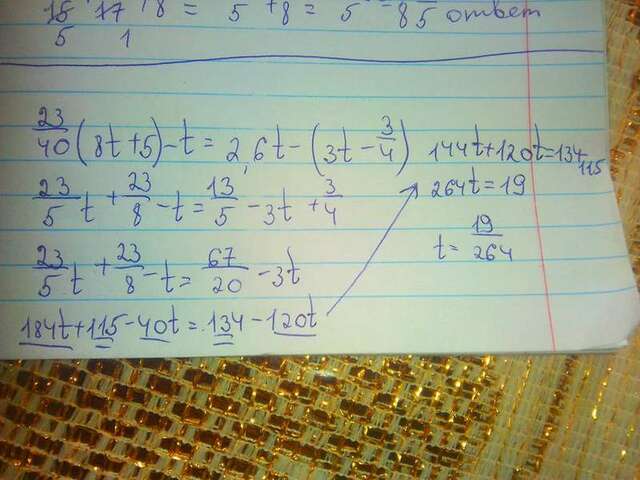 15 17 18 = 5 + 8 = 5 85 ответ
5 1
23/40 (8t+5) - t = 2,6t - (3t - 3/4)
23/5 t + 23/8 - t = 13/5 - 3t + 3/4
23/5 t + 23/8 - t = 67/20 - 3t
184t + 115 - 40t = 134 - 120t
144t + 120t = 134 - 115
264t = 19
t = 19/264